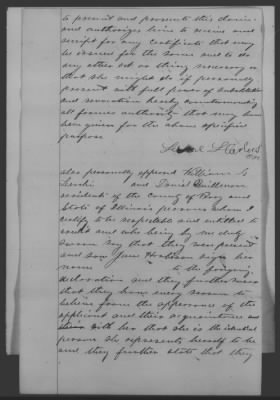 to present and prosecute this claim
and authorizes him to receive and
receipt for any certificate that may
be issued for the same and to do
any other act or thing necessary or
that she might do if personally
present with full power of substitution
and revocation hereby countermanding
all former authority that may have
been given for the above specified
purpose
also personally appeared William G
and Daniel
residents of the County of
State of Illinois persons whom I
certify to be respectable and entitled to
credit and who being by me duly
sworn say that they were present
and saw Jane sign her
name to the foregoing
declaration and they further swear
that they have every reason to
believe from the appearance of the
applicant and their acquaintance
with her that she is the identical
person she represents herself to be
and they further state that they